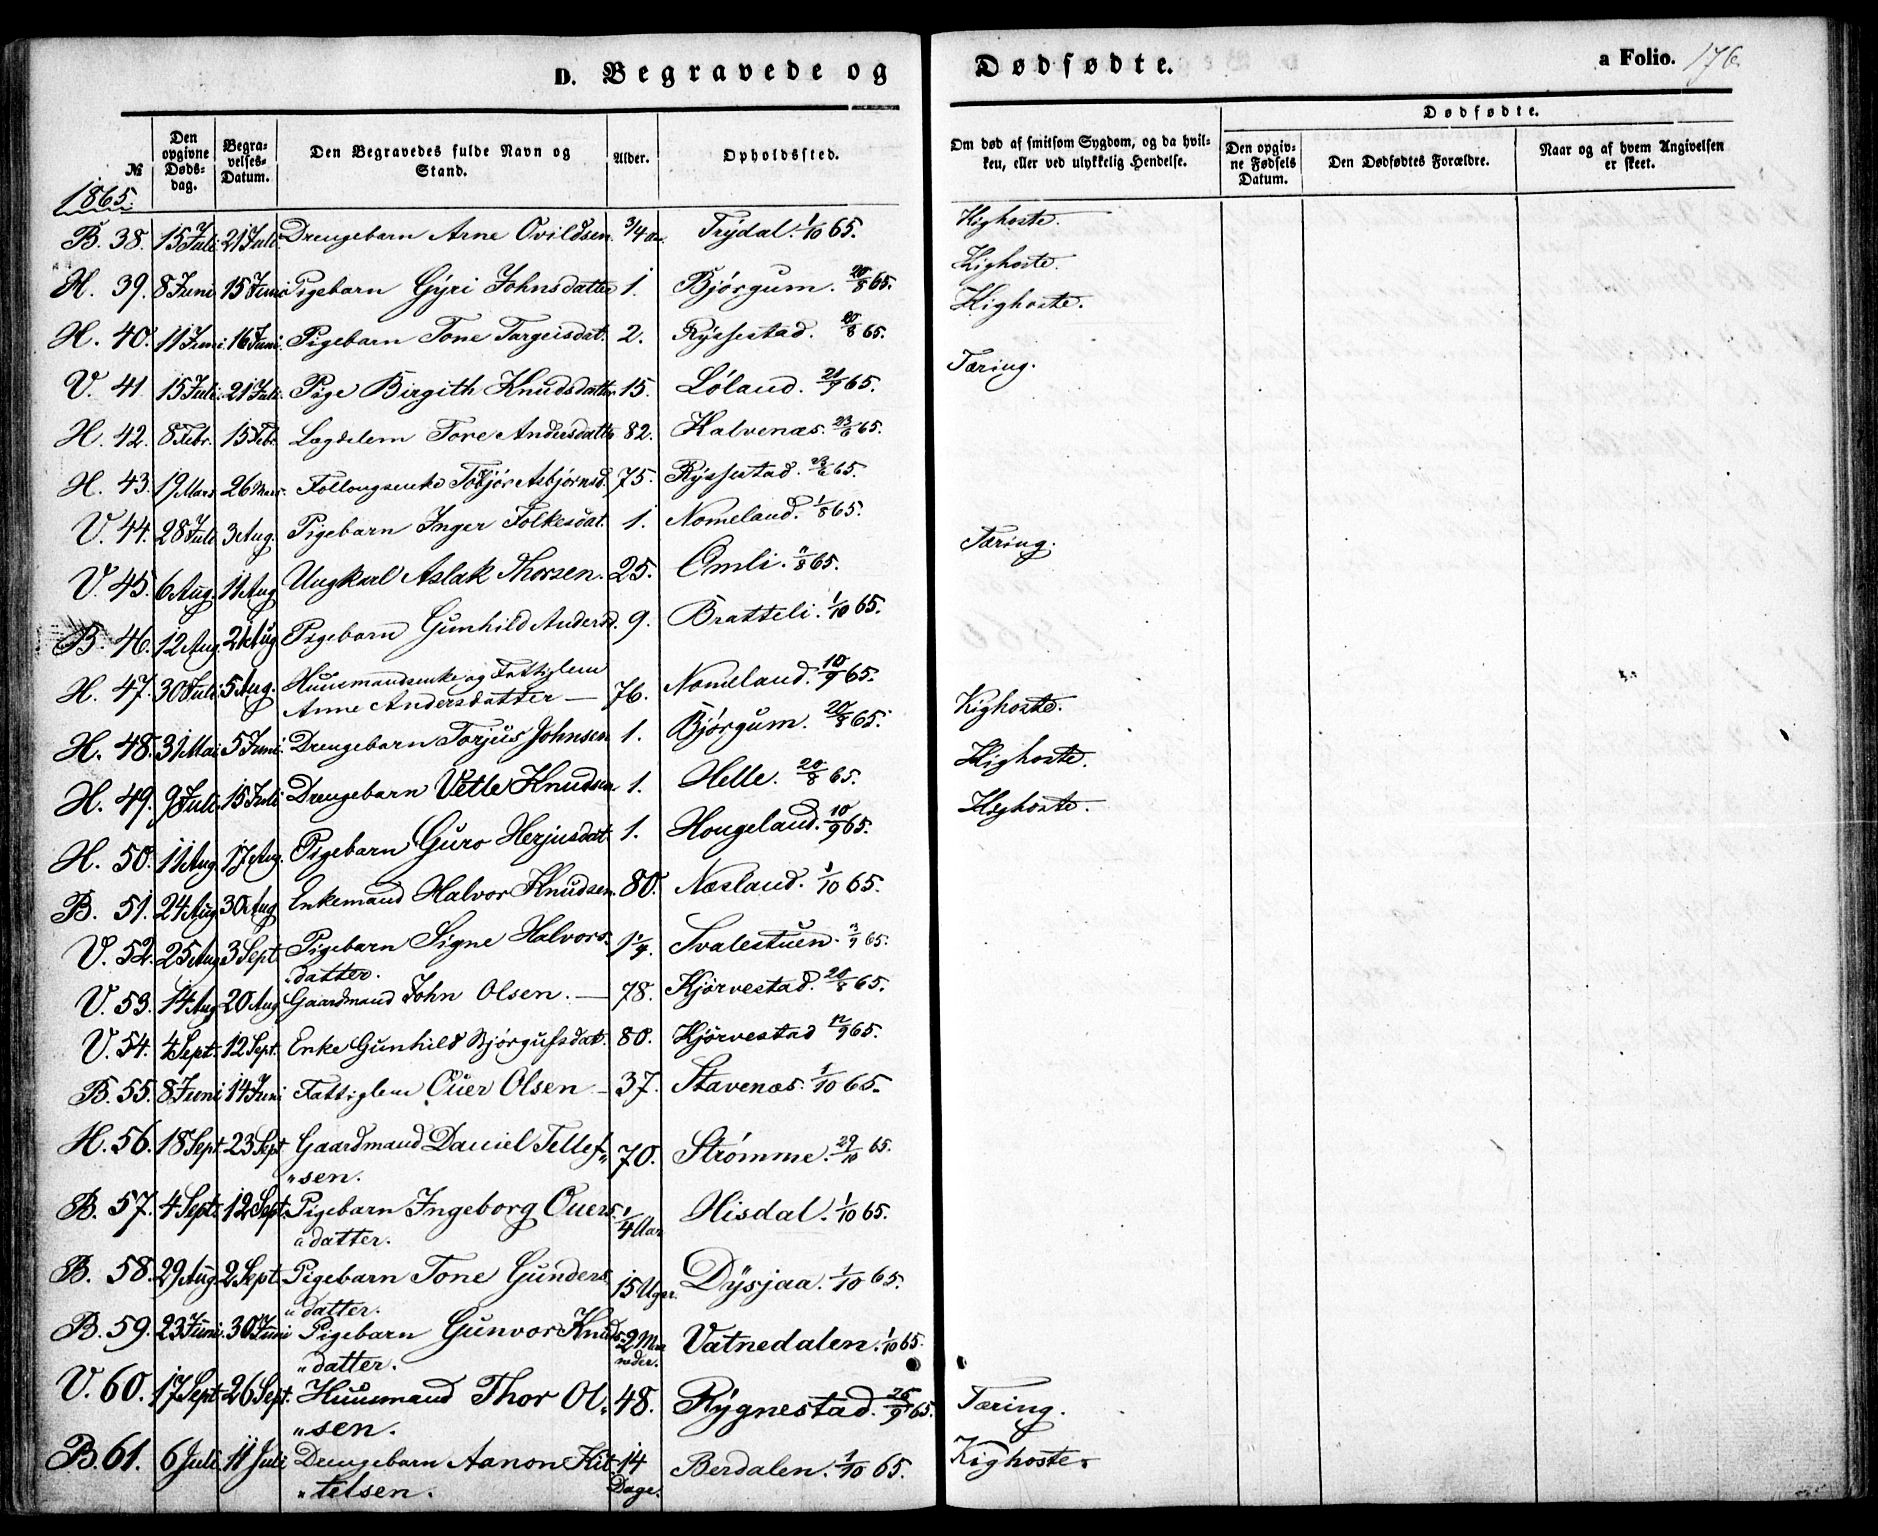 D. Begravede og Dødfødte.
a Folio. 176.
№
Den opgivne Døds-dag.
Begra-velses-Datum.
Den Begravedes fulde Navn og Stand.
Alder.
Opholdssted.
Om død af smitsom Sygdom, og da hvil-ken, eller ved ulykkelig Hendelse.
Dødfødte.
Den opgiv-ne Fødsels Datum.
Den Dødfødtes Forældre.
Naar og af hvem Angivelsen er skeet.
1865.
B. 38. 15 Juli. 21 Juli. Drengebarn Arne Ovildsen. 3/4 Trydal. 1/10 65. Kighoste.
H. 39. 8 Juni 15 Juni Pigebarn Gyri Johnsdatter 1. Bjørgum. 20/8 65. Kighoste.
H. 40. 11 Juni. 16 Juni. Pigebarn Tone Targeisdat. 2. Ryssestad. 20/8 65. Kighoste.
V. 41. 15 Juli. 21 Juli. Pige Birgith Knudsdatter 15. Løland. 21/7 65. Tæring.
H. 42. 8 Febr. 15 Febr. Lægdelem Tore Andersdatt 82. Halvenæs. 23/6 65.
H. 43. 19 Mars 26 Mars. Follougsenke Tobjør Asbjørnsd. 75. Ryssestad. 23/6 65.
V. 44. 28 Juli 3 Aug. Pigebarn Inger Folkesdat. 1. Nomeland. 1/8 65.
V. 45. 6 Aug. 11 Aug Ungkarl Aslak Thorsen. 25. Omli. 11/8 65. Tæring.
B. 46. 12 Aug. 21 Aug. Pigebarn Gunhild Andersd. 9. Bratteli. 1/10 65.
H. 47. 30 Juli. 5 Aug. Huusmandsenke og Fattiglem
Anne Andersdatter — 76. Nomeland. 10/9 65.
H. 48. 31 Mai 5 Juni. Drengebarn Torjus Johnsen 1. Bjørgum. 20/8 65. Kighoste.
H. 49. 9 Juli. 15 Juli Drengebarn Vetle Knudsen 1. Helle. 20/8 65. Kighoste.
H. 50. 11 Aug. 17 Aug. Pigebarn Guro Herjusdat. 1. Hougeland. 10/9 65. Kighoste.
B. 51. 24 Aug 30 Aug Enkemand Halvor Knudsen. 80. Næsland. 1/10 65.
V. 52. 25 Aug 3 Sept Pigebarn Signe Halvors-
datter. Svalestuen. 3/9 65.
V. 53. 14 Aug 20 Aug Gaardmand John Olsen. — 78. Kjørvestad. 20/8 65.
V. 54. 4 Sept. 12 Sept. Enke Gunhild Bjørgufsdat. 80. Kjørvestad 12/9 65.
B. 55. 8 Juni 14 Juni Fattiglem Ouer Olsen — 37. Stavenæs. 1/10 65.
H. 56. 18 Sept. 23 Sept Gaardmand Daniel Tellef-
"sen. 70. Strømme. 29/10 65.
B. 57. 4 Sept. 12 Sept. Pigebarn Ingeborg Ouers
datter. 1/4 Aar Hisdal. 1/10 65.
B. 58. 29 Aug. 2 Sept. Pigebarn Tone Gunders
datter. 15 Uger. Dysjaa. 1/10 65.
B. 59. 23 Juni. 30 Juni Pigebarn Gunvor Knuds-
"datter. 2 Maaneder. Vatnedalen. 1/10 65.
V. 60. 17 Sept. 26 Sept. Huusmand Thor Ol-
"sen. 48. Rygnestad. 26/9 65. Tæring.
B. 61. 6 Juli. 11 Juli Drengebarn Aanon Kit-
"telsen. 14 Dage. Berdalen. 1/10 65. Kighoste.